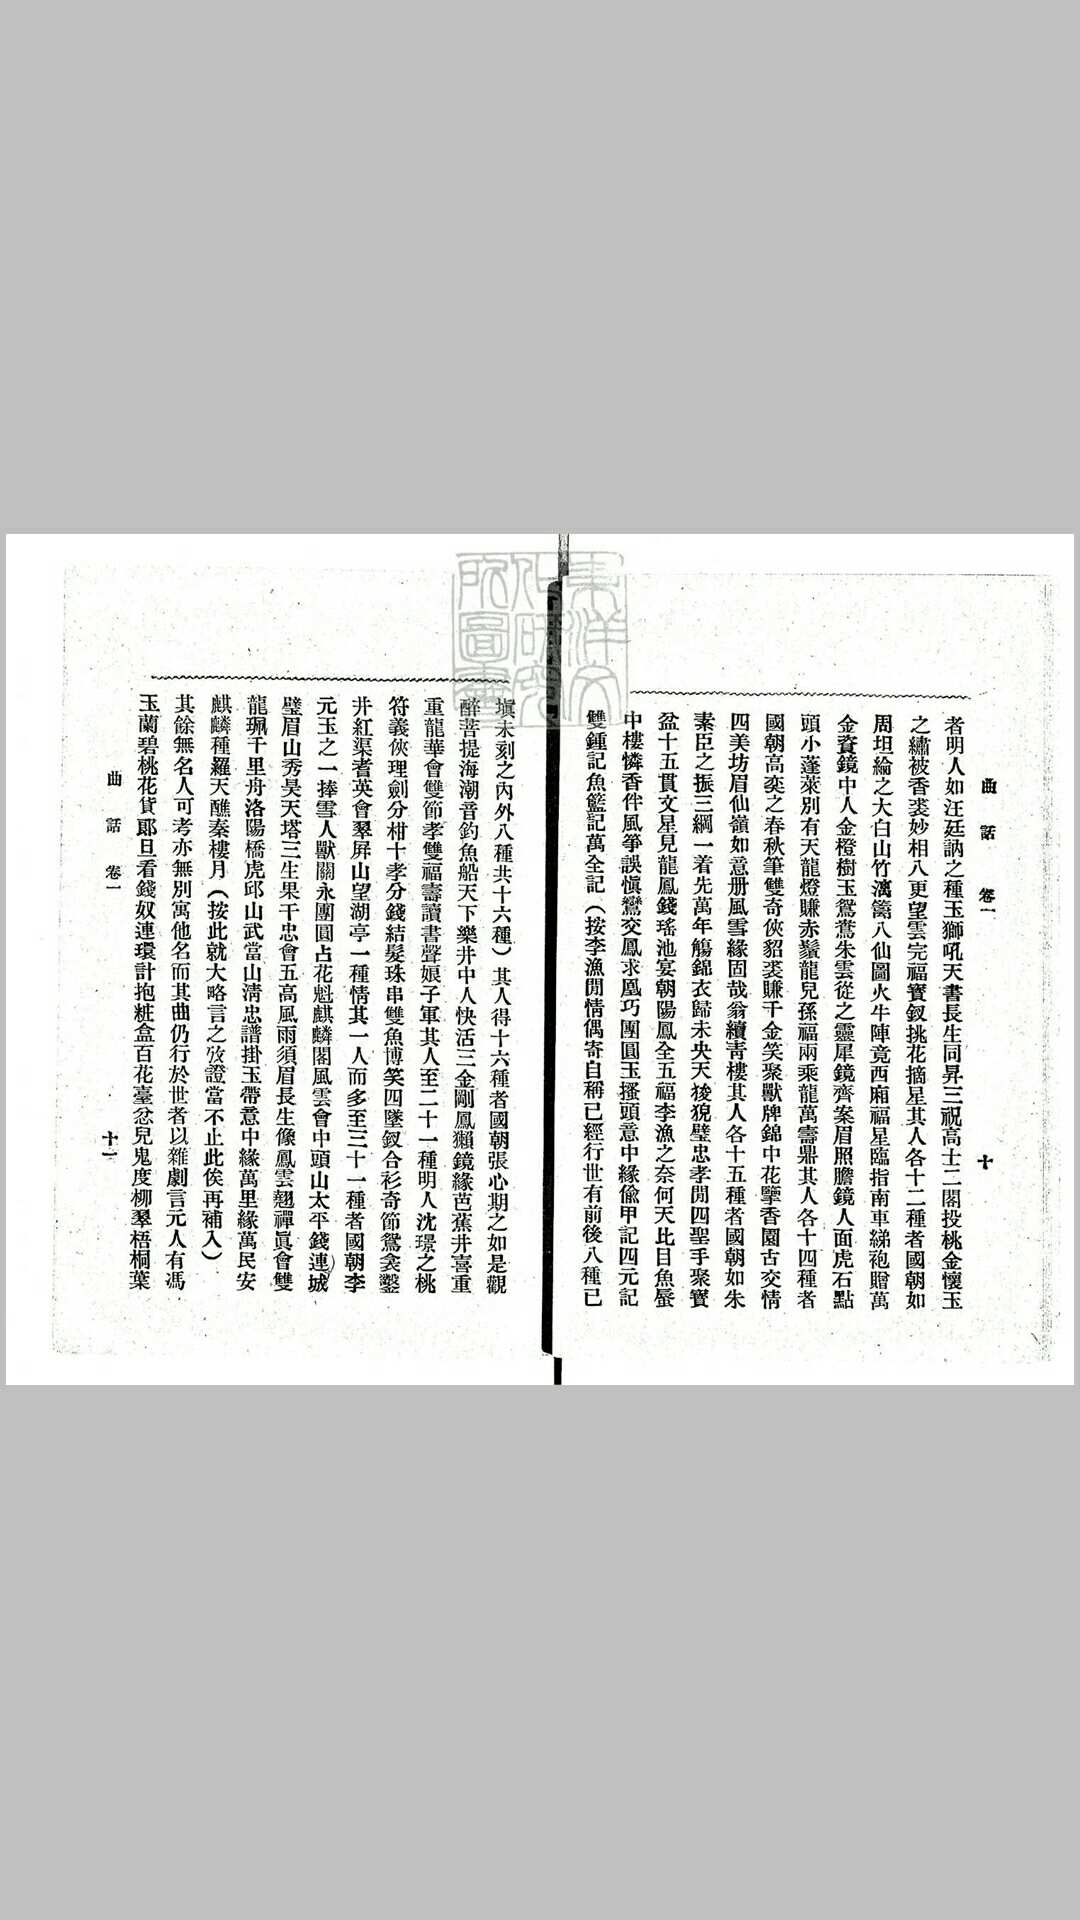 曲話 卷一 十
者明人如汪廷訥之種玉獅吼天書長生同昇三祝高士二閣投桃金懷玉
之繡被香裘妙相八更望雲完福寶釵挑花摘星其人各十二種者國朝如
周坦綸之大白山竹漉籬八仙圖火牛陣竟西廂福星臨指南車綈袍贈萬
金資鏡中人金橙樹玉鴛鴦朱雲從之靈犀鏡齊案眉照膽鏡人面虎石點
頭小蓬萊別有天龍燈賺赤鬚龍兒孫福兩乘龍萬壽鼎其人各十四種者
國朝高奕之春秋筆雙奇俠貂裘賺千金笑聚獸牌錦中花孽香園古交情
四美坊眉仙嶺如意册風雪緣固哉翁續靑樓其人各十五種者國朝如朱
素臣之振三綱一着先萬年觴錦衣歸未央天狻猊璧忠孝閒四聖手聚寶
盆十五貫文星見龍鳳錢瑤池宴朝陽鳳全五福李漁之奈何天比目魚蜃
中樓憐香伴風箏誤愼鸞交鳳求凰巧團圓玉搔頭意中緣偸甲記四元記
雙錘記魚籃記萬全記（按李漁閒情偶寄自稱已經行世有前後八種已
塡未刻之內外八種共十六種）其人得十六種者國朝張心期之如是觀
醉菩提海潮音釣魚船天下樂井中人快活三金剛鳳獺鏡緣芭蕉井喜重
重龍華會雙節孝雙福壽讀書聲娘子軍其人至二十一種明人沈璟之桃
符義俠埋劍分柑十孝分錢結髮珠串雙魚博笑四墜釵合衫奇節鴛衾鑿
井紅渠耆英會翠屛山望湖亭一種情其一人而多至三十一種者國朝李
元玉之一捧雪人獸關永團圓占花魁麒麟閣風雲會中頭山太平錢連城
璧眉山秀昊天塔三生果千忠會五高風雨須眉長生像鳳雲翹禪眞會雙
龍珮千里舟洛陽橋虎邱山武當山淸忠譜掛玉帶意中緣萬里緣萬民安
麒麟種羅天醮秦樓月（按此就大略言之攷證當不止此俟再補入）
其餘無名人可考亦無別寓他名而其曲仍行於世者以雜劇言元人有馮
玉蘭碧桃花貨郞旦看錢奴連環計抱粧盒百花臺忿兒鬼度柳翠梧桐葉
曲話 卷一 十一